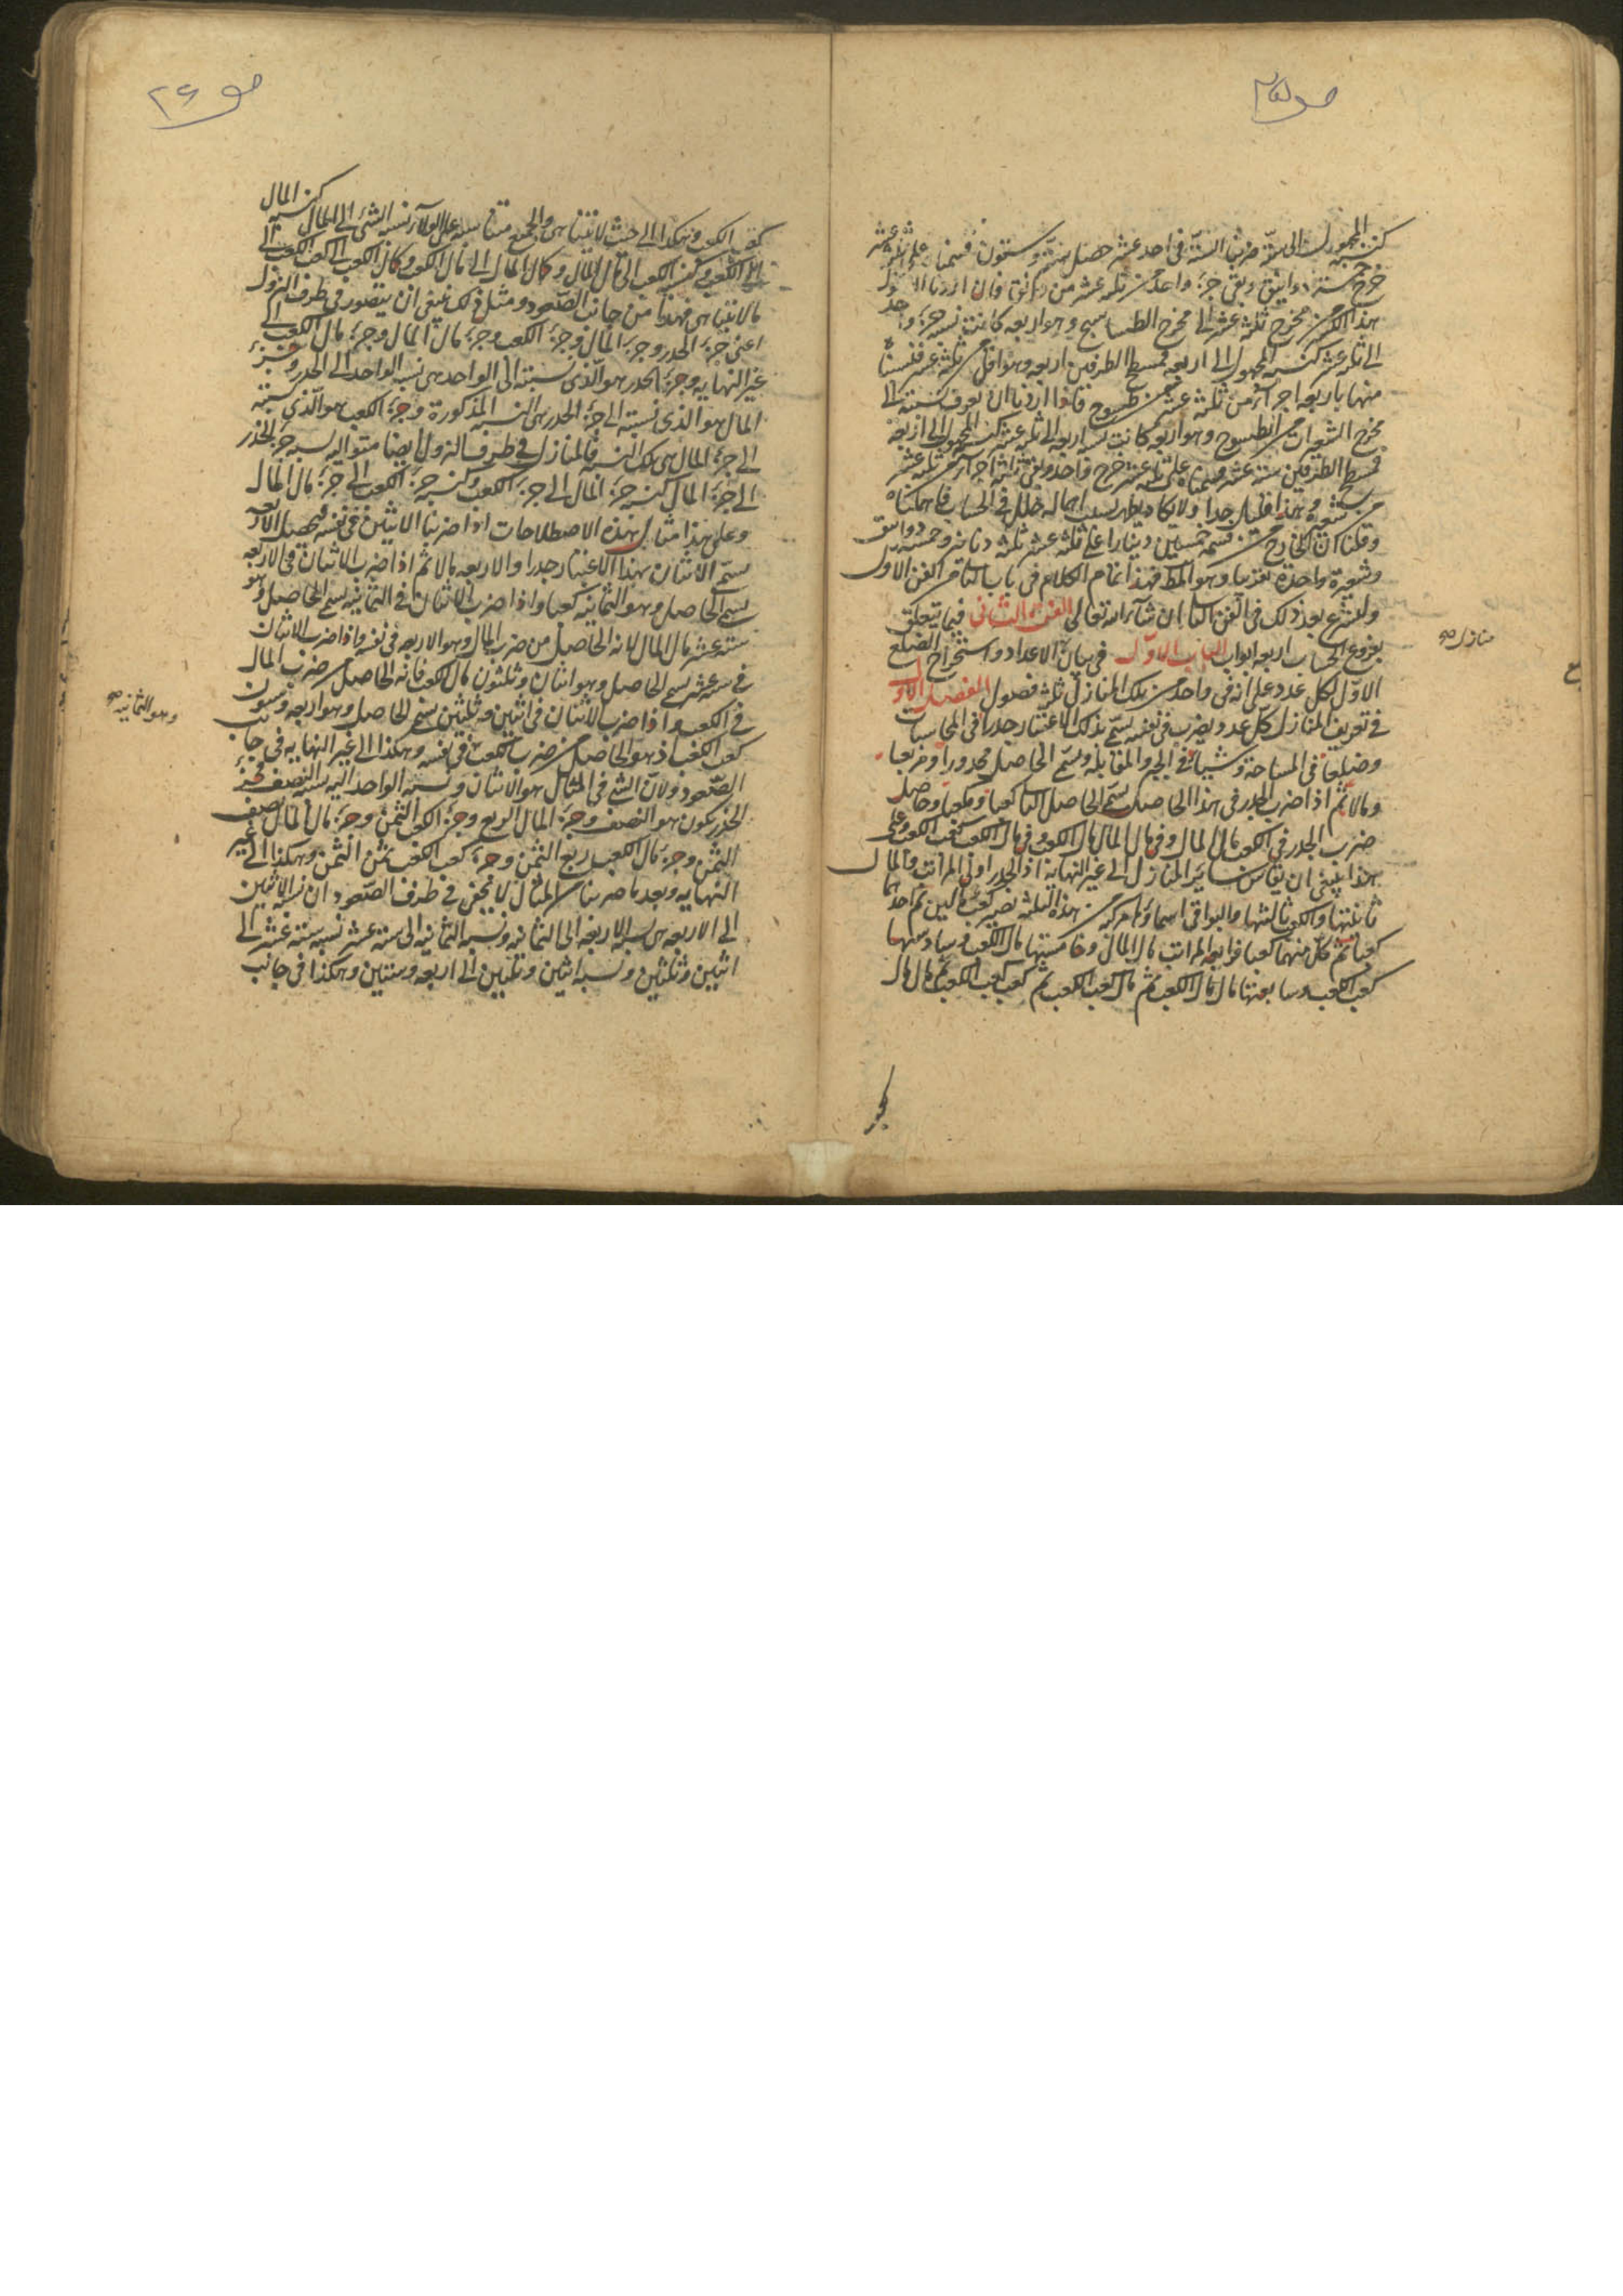 ص ٢٥
كنسبة المجهول الى ستة ضربنا الستة فى احد عشر حصل ستة وستون قسمناه على ثلثة عشر
خرج خمسة دوانيق وبقى جزء واحد من ثلثة عشر من دانق فان اردنا ان نحول
هذا الكسر من مخرج ثلثة عشر الى مخرج الطساسيج وهو اربعه كانت نسبة جزء واحد
الى ثلثه عشر كنسبة المجهول الى اربعه فمسطح الطرفين اربعه وهو اقل من ثلثة عشر فنسبناه
منها باربعه اجزاء من ثلثه عشر من طسوج فاذا اردنا ان نعرف نسبته الى
مخرج الشعيرات من الطسوج وهو اربعه كانت نسبة اربعه الى ثلثه عشر كنسبة المجهول الى اربعة
فمسطح الطرفين ستة عشر قسمناه على ثلثة عشر خرج واحد وبقى ثلثة اجزاء من ثلثه عشر
من شعيرة وهذا قليل جدا ولا يكاد يظهر بسبب اهماله خلل فى الحساب فاهملناه
وقلنا كان الخارج من قسمة خمسين دينارا على ثلثه عشر ثلثه دنانير وخمسة دوانيق
وشعيرة واحدة تقريبا وهو المط فهذا تمام الكلام فى باب النسبة من الفن الاول
ولنشرع بعد ذلك فى الفن الثانى ان شاء الله تعالى الفن الثانى فيما يتعلق
بفروع الحساب اربعه ابواب الباب الاول فى بيان الاعداد واستخراج الضلع
الاول لكل عدد على انه فى واحد من تلك المنازل ثلثه فصول الفصل الاول
فى تعريف المنازل كل عدد يضرب فى نفسه يسمى بذلك الاعتبار جذرا فى المحاسبات
وضلعا فى المساحة وشيئا فى الجبر والمقابله ويسمى الحاصل مجذورا ومربعا
ومالا ثم اذا ضرب الجذر فى هذا الحاصل يسمى الحاصل الثانى كعبا ومكعبا وحاصل
ضرب الجذر فى الكعب مال المال وفى مال المال مال الكعب وفى مال الكعب كعب الكعب وعلى
هذا ينبغى ان يقاس سائر المنازل الى غير النهاية اذ الجذر اولى المراتب والمال
ثانيتها والكعب ثالثتها والبواقى اسماؤها مركبة من هذه الثلثه تصير كعب مالين ثم احدهما
كعبا ثم كل منهما كعبا فرابعة المراتب مال المال وخامستها مال الكعب وسادستها
كعب الكعب وسابعتها مال مال الكعب ثم مال كعب الكعب ثم كعب كعب الكعب ثم مال مال
منازل صح
ص ٢٦
كعب الكعب وهكذا الى حيث لا يتناهى والجميع متناسبه على الولاء نسبة الشئ الى المال كنسبة المال
الى الكعب وكنسبة الكعب الى مال المال وكمال المال الى مال الكعب وكمال الكعب الى كعب الكعب الى
ما لا يتناهى فهذا من جانب الصعود ومثل ذلك ينبغى ان يتصور فى طرف النزول
اعنى جزء الجذر وجزء المال وجزء الكعب وجزء مال المال وجزء مال الكعب الى
غير النهايه وجزء الجذر هو الذى نسبته الى الواحد هى نسبة الواحد الى الجذر وجزء
المال هو الذى نسبته الى جزء الجذر هى النسبة المذكورة وجزء الكعب هو الذى نسبته
الى جزء المال هى تلك النسبة فالمنازل فى طرف النزول ايضا متواليه نسبة جزء الجذر
الى جزء المال كنسبة جزء المال الى جزء الكعب وكنسبة جزء الكعب الى جزء مال المال
وعلى هذا مثال لهذه الاصطلاحات اذا ضربنا الاثنين فى نفسه فيحصل الاربعه
يسمى الاثنان بهذا الاعتبار جذرا والاربعه مالا ثم اذا ضرب الاثنان فى الاربعه
يسمى الحاصل وهو الثمانيه كعبا واذا ضرب الاثنان فى الثمانيه يسمى الحاصل وهو
ستة عشر مال المال لانه الحاصل من ضرب المال وهو الاربعه فى نفسه واذا ضرب الاثنان
فى ستة عشر يسمى الحاصل وهو اثنان وثلثون مال الكعب فانه الحاصل من ضرب المال
فى الكعب واذا ضرب الاثنان فى اثنين وثلثين يسمى الحاصل وهو اربعه وستون
كعب الكعب اذ هو الحاصل من ضرب الكعب فى نفسه وهكذا الى غير النهايه فى جانب
الصعود ولان الشئ فى المثال هو الاثنان ونسبة الواحد اليه نسبة النصف فجزء
الجذر يكون هو النصف وجزء المال الربع وجزء الكعب الثمن وجزء مال المال نصف
الثمن وجزء مال الكعب ربع الثمن وجزء كعب الكعب ثمن الثمن وهكذا الى غير
النهايه وبعد ما ضربنا من المثال لا يخفى فى طرف الصعود ان نسبة الاثنين
الى الاربعه هى نسبة الاربعه الى الثمانيه ونسبة الثمانيه الى ستة عشر نسبة ستة عشر الى
اثنين وثلثين ونسبة اثنين وثلثين الى اربعه وستين وهكذا فى جانب
وهو الثمانيه صح